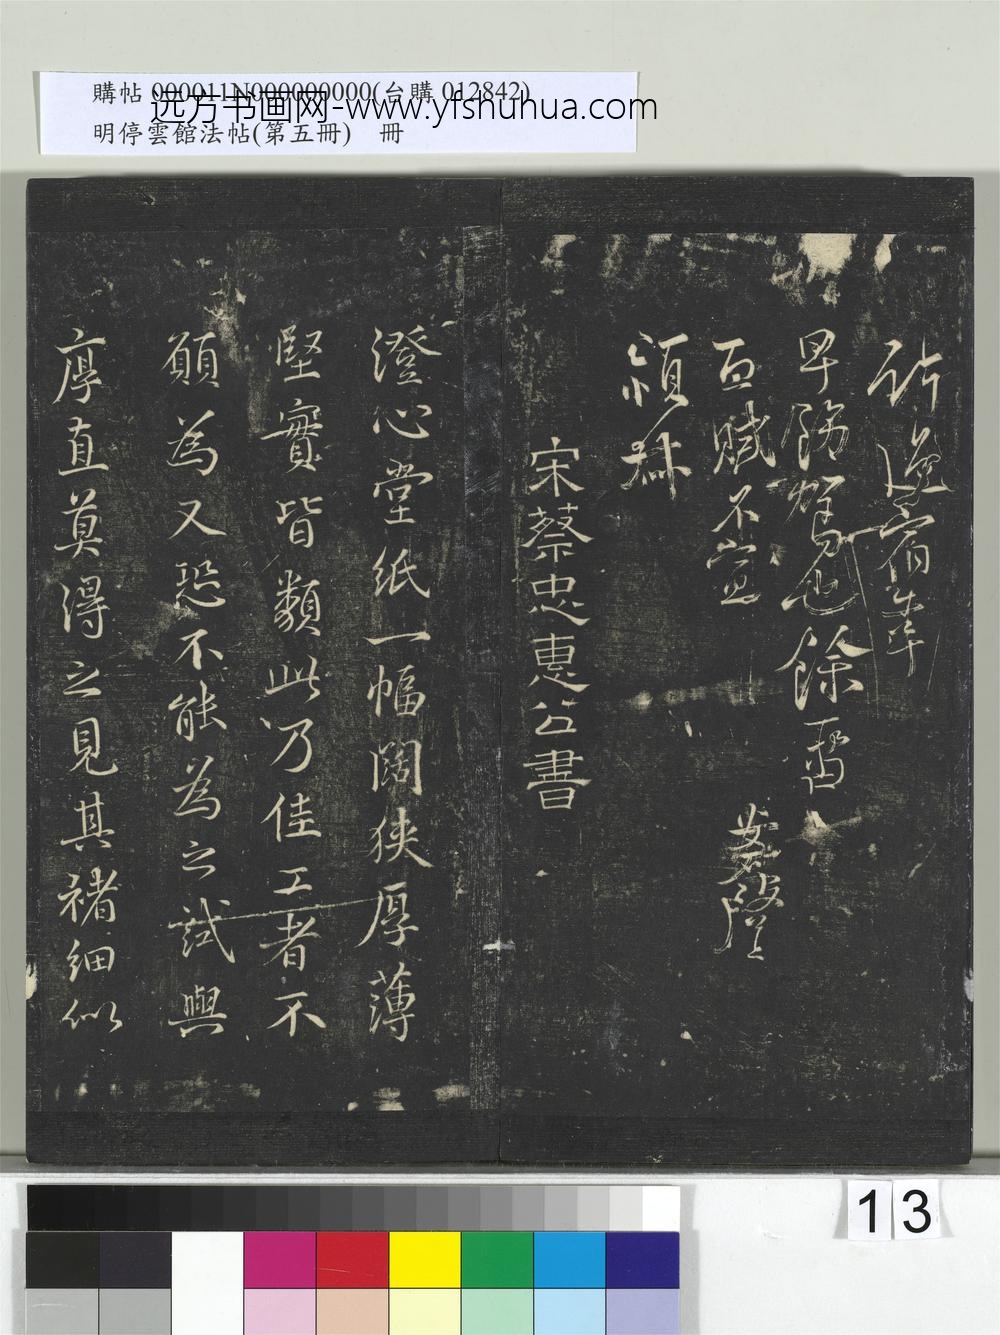 購帖 000011N000000000(台購 012842)
远方书画网-www.yfshuhua.com
明停雲館法帖(第五冊)　冊
早 也餘面
不宣
宋蔡忠惠公書
澄心堂紙一幅闊狹厚薄
堅實皆類此乃佳工者不
願為又恐不能為之試與
厚直莫得之見其褚細似
13